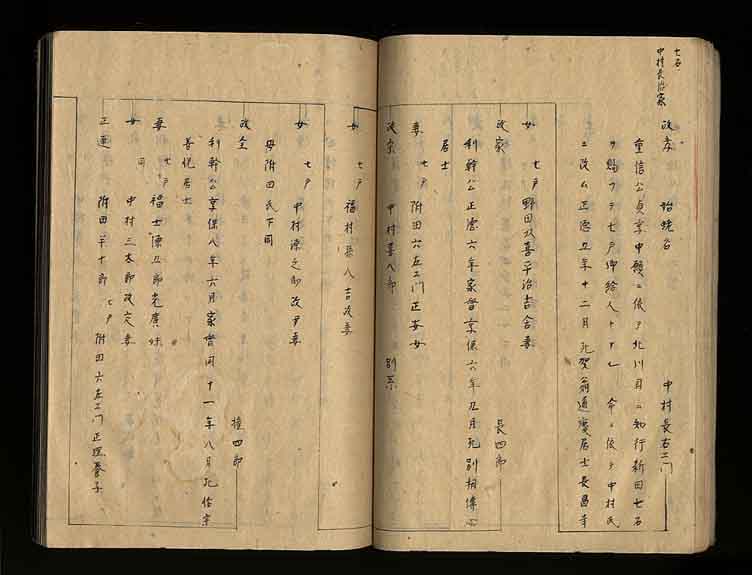 七石
中村長治家
政孝 始 蛯名 中村長右エ門
重信公貞享中願ニ依テ北川目ニ知行新田七石
ヲ賜フテ七戸御給人トナし 命ニ依テ中村氏
ニ改ム正徳五年十二月死賀翁道慶居士長昌寺
女 七戸野田又喜平治吉舎妻
政家 長四郎
利幹公正徳六年家督享保六年五月死別相傳心
居士
妻 七戸附田六左エ門正安女
政家 中村喜八郎 別系
女 七戸 福村長八吉政妻
女 七戸 中村源之助政尹妻
母附田氏下同
政全 権四郎
利幹公享保八年六月家督同十一年八月死估宗
善悦居士
妻 七戸 福士傳五郎光廣妹
女 同 中村三太郎政定妻
正連 附田半十郎 七戸 附田六左エ門正照養子